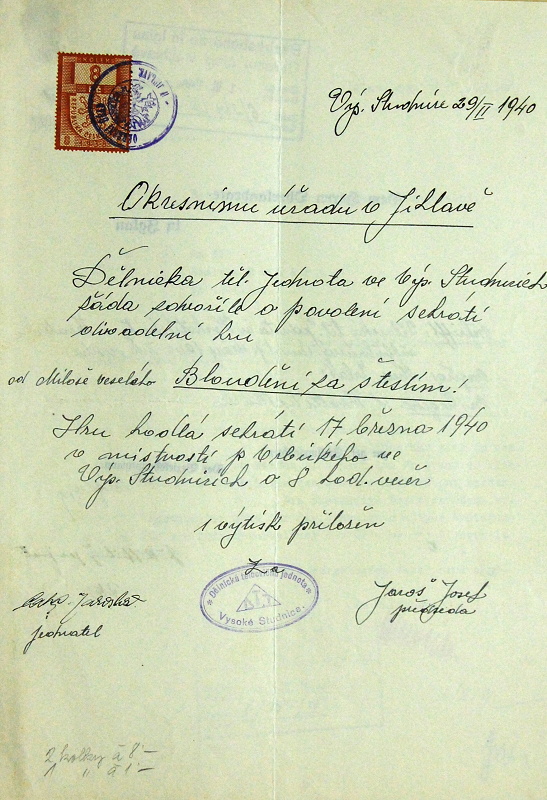 KOLEK
8
Výs. Studnice 29/II 1940
Okresnímu úřadu v Jihlavě
Dělnická těl. Jednota ve Výs. Studnicích
žáda zdvořile o povolení sehráti
divadelní hru
od Miloše Veselého Bloudění za štěstím!
Hru hodlá sehráti 17 března 1940
v místnosti p Vrbického ve
Výs. Studnicích o 8 hod. večer
1 výtisk přiložen
Za
Dělnická tělocvičná jednota
Vysoké Studnice.
Jaroš Josef
předseda
jednatel
2 kolky á 8.–
1 " á 1.–